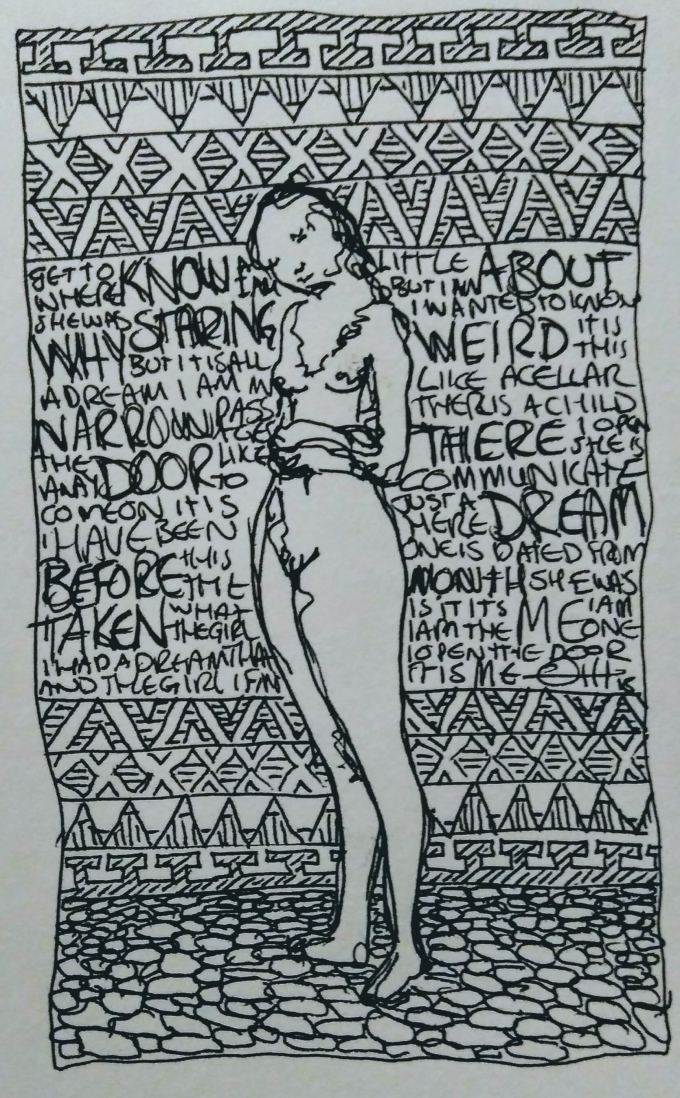 GET TO KNOW
WHERE
SHE WAS STARING
WHY BUT IT IS ALL
A DREAM I AM
NARROW PASS
GES
THE DOOR LIKE
WAY TO
COMEON IT IS
I HAVE BEEN
BEFORE THIS
THE
TAKEN WHAT
THEGIRL
I HAD A DREAM THAT
AND THE GIRL IF IN
LITTLE ABOUT
BUT I AM
I WANTED TO KNOW
WEIRD IT IS
THIS
LIKE ACELLAR
THERIS A CHILD
THERE I OPEN
SHE IS
COMMUNICATE
JUST A DREAM
HERE
ONE IS DATED FROM
MONTH SHE WAS
IS IT ITS ME I AM
I AM THE ONE
I OPEN THE DOOR
IT IS ME